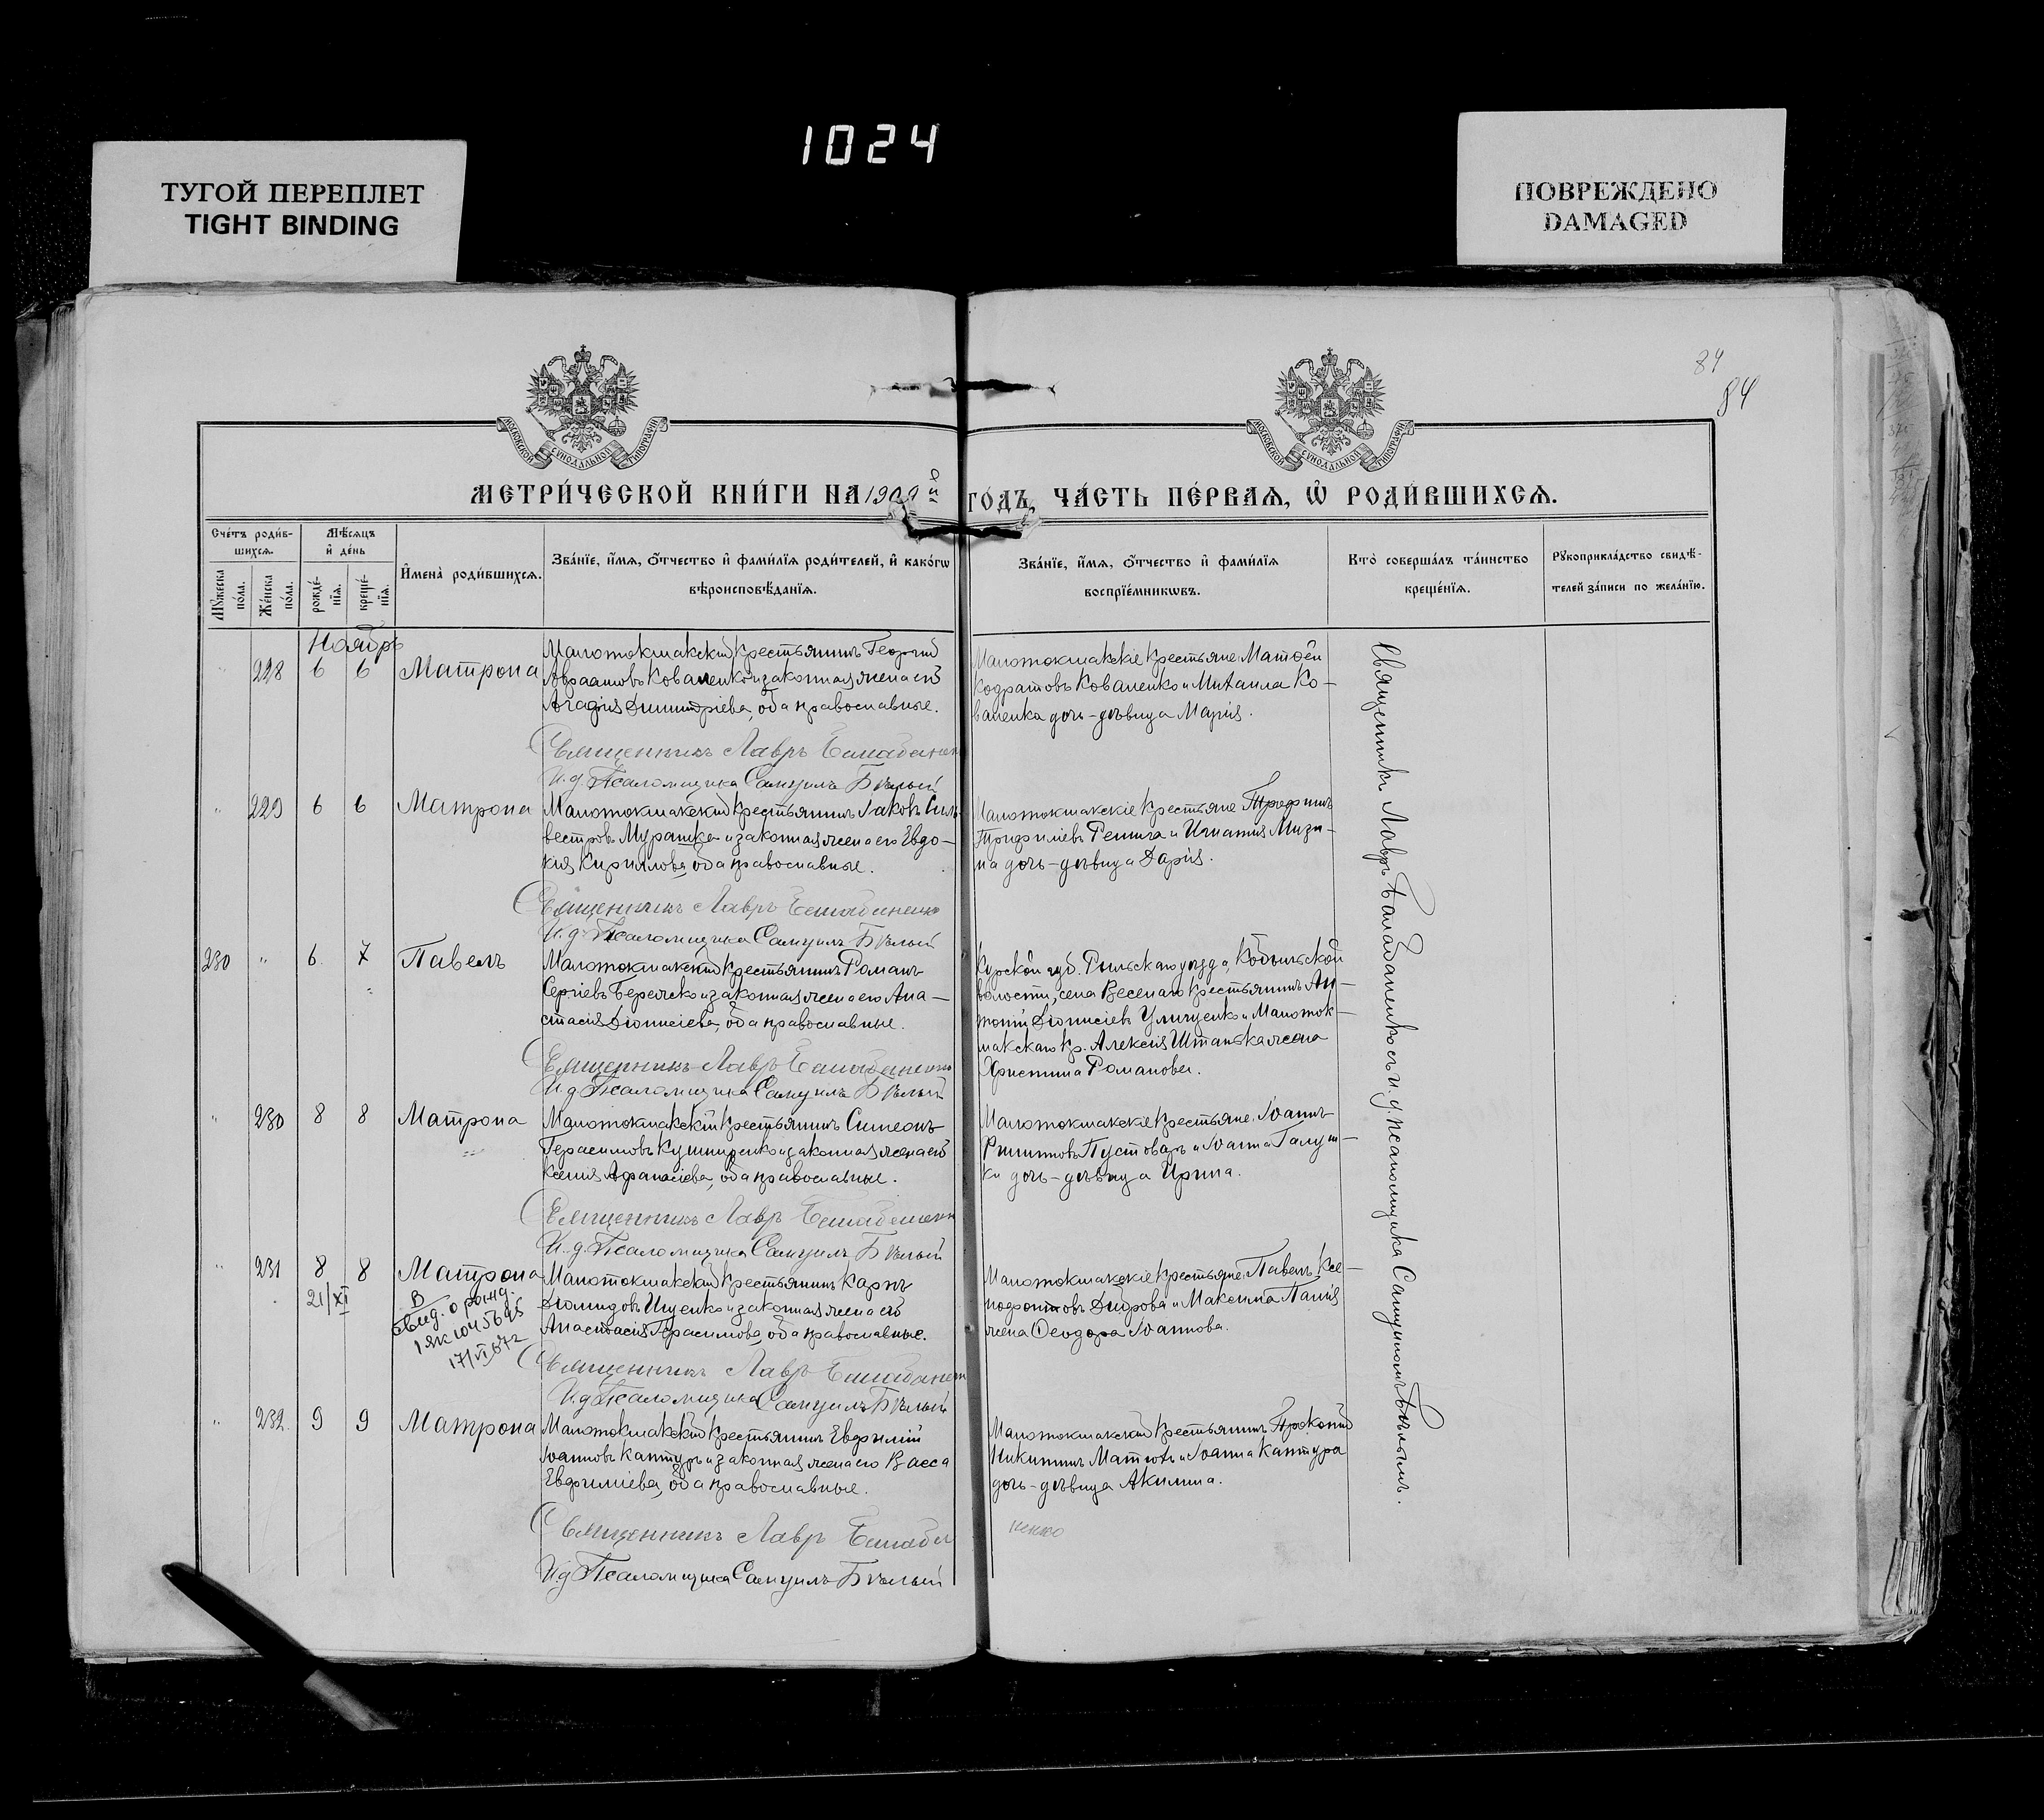 1024
ТУГОЙ ПЕРЕПЛЕТ
TIGHT BINDING
ПОВРЕЖДЕНО
DAMAGED
84
84
МОСКОВСКОЙ СѴНОДАЛЬНОЙ ТИПОГРАФІИ
МОСКОВСКОЙ СѴНОДАЛЬНОЙ ТИПОГРАФІИ
МЕТРИ́ЧЕСКОЙ КНИ́ГИ НА 1909 ый ГО́ДЪ, ЧА́СТЬ ПЕ́РВАѦ, Ѡ҆ РОДИ́ВШИХСѦ.
Сче́тъ роди́в-
шихсѧ.
Мꙋ́жеска
по́ла.
Же́нска
по́ла.
Мѣ́сѧцъ
и҆ де́нь
рожде́-
нїѧ.
креще́-
нїѧ.
И҆мена̀ роди́вшихсѧ.
Зва́нїе, и҆́мѧ, ѻ҆́тчество и҆ фами́лїѧ роди́телей, и҆ како́гѡ
вѣроисповѣ́данїѧ.
Зва́нїе, и҆́мѧ, ѻ҆́тчество и҆ фами́лїѧ
воспрїе́мникѡвъ.
Кто̀ соверша́лъ та́инство
креще́нїѧ.
Рꙋкоприкла́дство свидѣ́-
телей за́писи по жела́нїю.
Ноябрь
" 228 6 6 Матрона
Малотокмакскій крестьянинъ Георгій
Авраамовъ Коваленко и законная жена его
Агафія Димитріева, оба православные.
Священникъ Лавръ Балабаненко
И. д. Псаломщика Самуилъ Бѣлый
Малотокмакскіе крестьяне: Матѳей
Кодратовъ Коваленко и Михаила Ко-
валенка дочь-дѣвица Марія.
" 229 6 6 Матрона
Малотокмакскій крестьянинъ Іаковъ Силь-
вестровъ Мурашка и законная жена его Евдо-
кія Кириллова, оба православные.
Священникъ Лавръ Балабаненко
И. д. Псаломщика Самуилъ Бѣлый
Малотокмакскіе крестьяне Трифилъ
Трифиліевъ Репяга и Игнатія Мизи-
на дочь-дѣвица Дарія.
230 " 6 7 Павелъ
Малотокмакскій крестьянинъ Романъ
Сергіевъ и законная жена его Ана-
стасія Діонисіева, оба православные.
Священникъ Лавръ Балабаненко
И. д. Псаломщика Самуилъ Бѣлый
Курской губ. Рыльскаго уѣзда, Кобыльской
волости, села Веселаго крестьянинъ Ан-
тоній Діонисіевъ и Малоток-
макскаго кр. Алексія Штанька жена
Христина Романова.
" 230 8 8 Матрона
Малотокмакскій крестьянинъ Симеонъ
Герасимовъ Кушниренко и законная жена его
Ксенія Афанасіева, оба православные.
Священникъ Лавръ Балабаненко
И. д. Псаломщика Самуилъ Бѣлый
Малотокмакскіе крестьяне: Іоаннъ
Филиповъ Пустоваръ и Іоанна Галуш-
ки дочь-дѣвица Ирина.
" 231 8 8 Матрона
21/XI
В
свид. о рожд.
1 ЯК 1045695
17/VI 67 г
Малотокмакскій крестьянинъ Карпъ
Діомидовъ Ищенко и законная жена его
Анастасія Герасимова, оба православные.
Священникъ Лавръ Балабаненко
И. д. Псаломщика Самуилъ Бѣлый
Малотокмакскіе крестьяне: Павелъ Ксе-
нофонтовъ Диброва и Максима Папія
жена Ѳеодора Іоаннова.
" 232. 9 9 Матрона
Малотокмакскій крестьянинъ Евфимій
Іоанновъ Кантуръ и законная жена его Васса
Евфиміева, оба православные.
Священникъ Лавръ Балаба
ненко
И. д. Псаломщика Самуилъ Бѣлый
Малотокмакскій крестьянинъ Прокопій
Никитинъ Матюхъ и Іоанна Кантура
дочь-дѣвица Акилина.
Священникъ Лавръ Балабаненко съ и. д. псаломщика Самуиломъ Бѣлымъ.